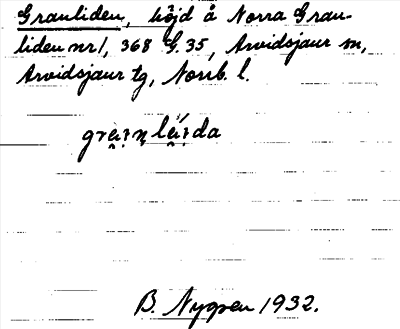 Granliden, höjd å Norra Gran-
liden nr 1, 368 G. 35, Arvidsjaur sn,
Arvidsjaur tg, Norrb. l.
B. Nygren 1932.